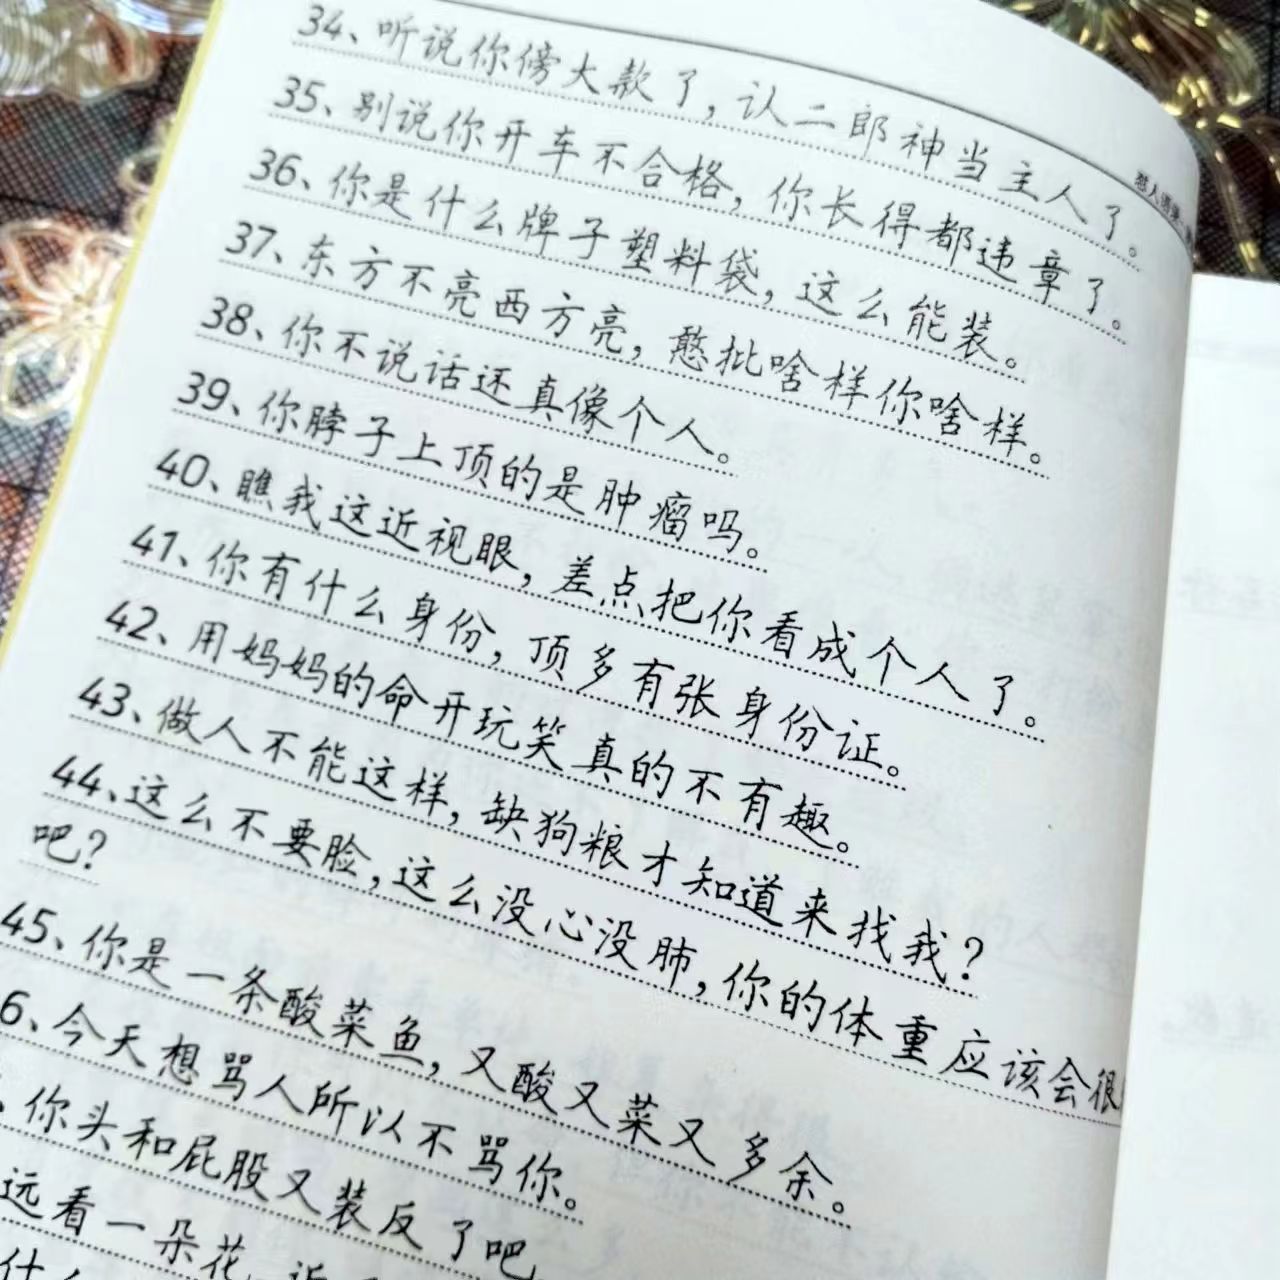 34、听说你傍大款了，认二郎神当主人了。
35、别说你开车不合格，你长得都违章了。
36、你是什么牌子塑料袋，这么能装。
37、东方不亮西方亮，憨批啥样你啥样。
38、你不说话还真像个人。
39、你脖子上顶的是肿瘤吗。
40、瞧我这近视眼，差点把你看成个人了。
41、你有什么身份，顶多有张身份证。
42、用妈妈的命开玩笑真的不有趣。
43、做人不能这样，缺狗粮才知道来找我？
44、这么不要脸，这么没心没肺，你的体重应该会很
吧？
45、你是一条酸菜鱼，又酸又菜又多余。
6、今天想骂人所以不骂你。
、你头和屁股又装反了吧
远看一朵花
什么
怼人